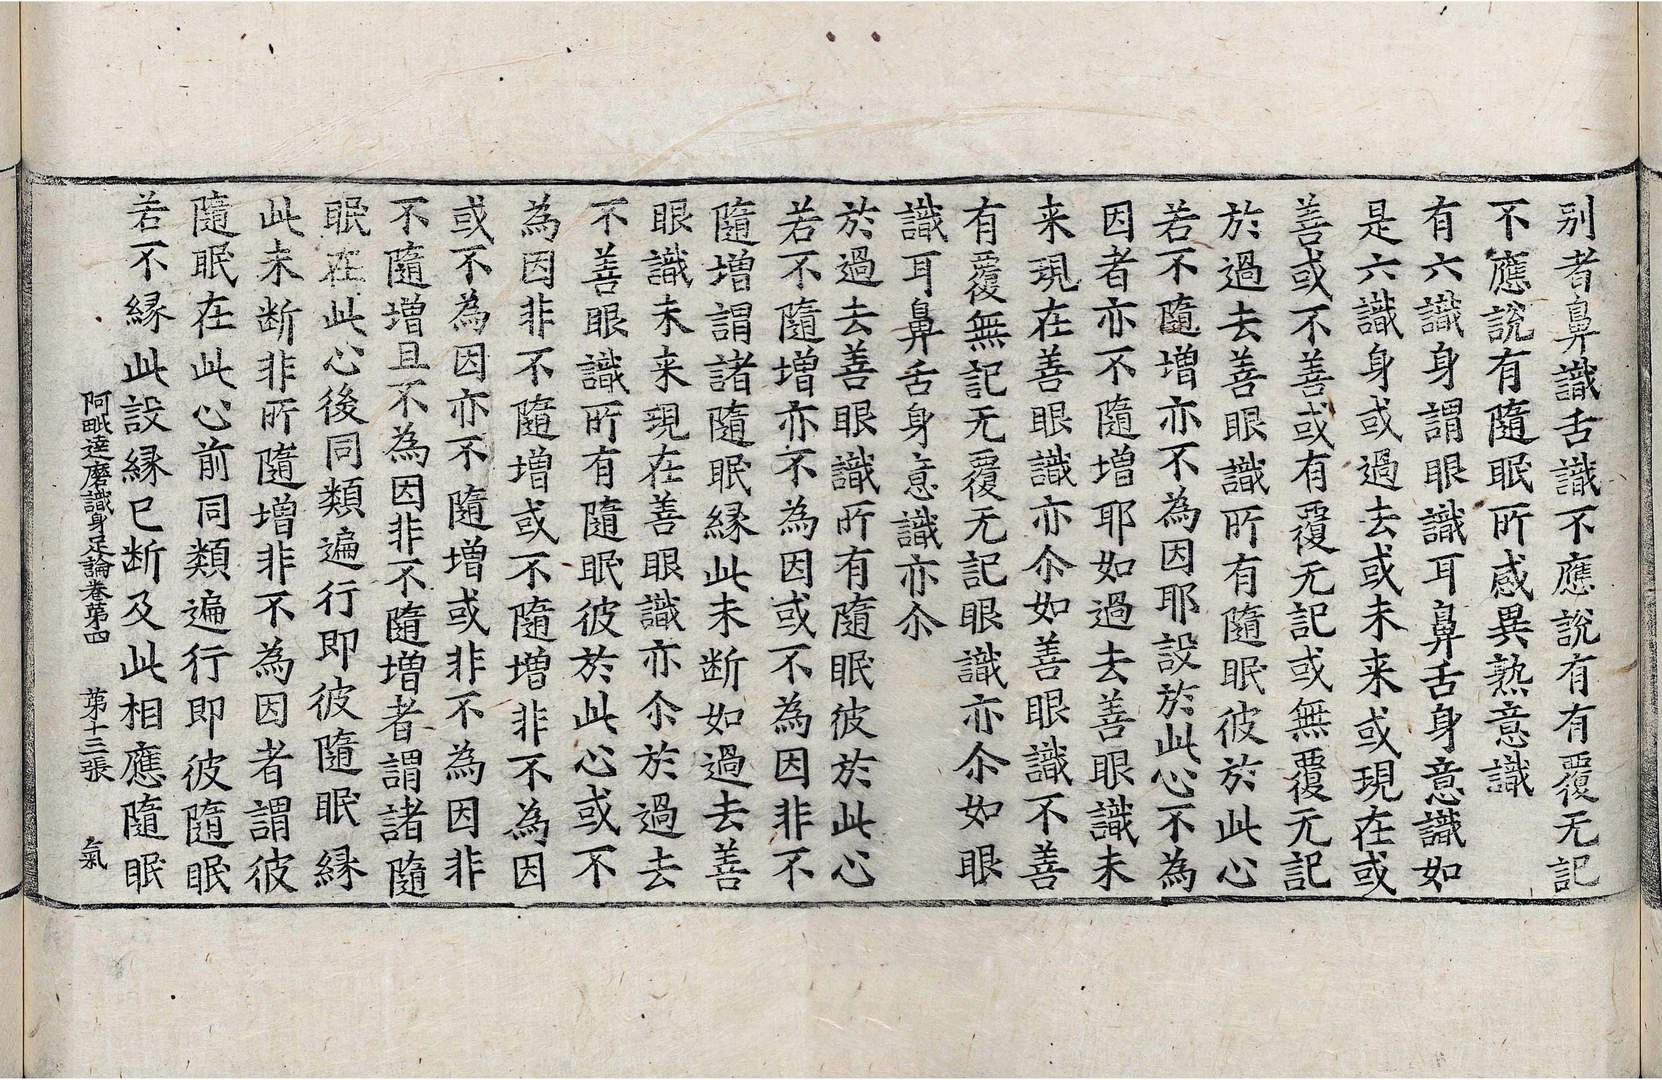 别者鼻識舌識不應說有有覆无記
不應說有隨眠所感異熟意識
有六識身謂眼識耳鼻舌身意識如
是六識身或過去或未来或現在或
善或不善或有覆无記或無覆无記
於過去善眼識所有隨眠彼於此心
若不隨增亦不為因耶設於此心不為
因者亦不隨增耶如過去善眼識未
来現在善眼識亦尒如善眼識不善
有覆無記无覆无記眼識亦尒如眼
識耳鼻舌身意識亦尒
於過去善眼識所有隨眠彼於此心
若不隨增亦不為因或不為因非不
隨增謂諸隨眠緣此未断如過去善
眼識未来現在善眼識亦尒於過去
不善眼識所有隨眠彼於此心或不
為因非不隨增或不隨增非不為因
或不為因亦不隨增或非不為因非
不隨增且不為因非不隨增者謂諸隨
眠在此心後同類遍行即彼隨眠緣
此未断非所隨增非不為因者謂彼
隨眠在此心前同類遍行即彼隨眠
若不緣此設緣已断及此相應隨眠
阿毗達磨識身足論卷第四 第十三張 氣